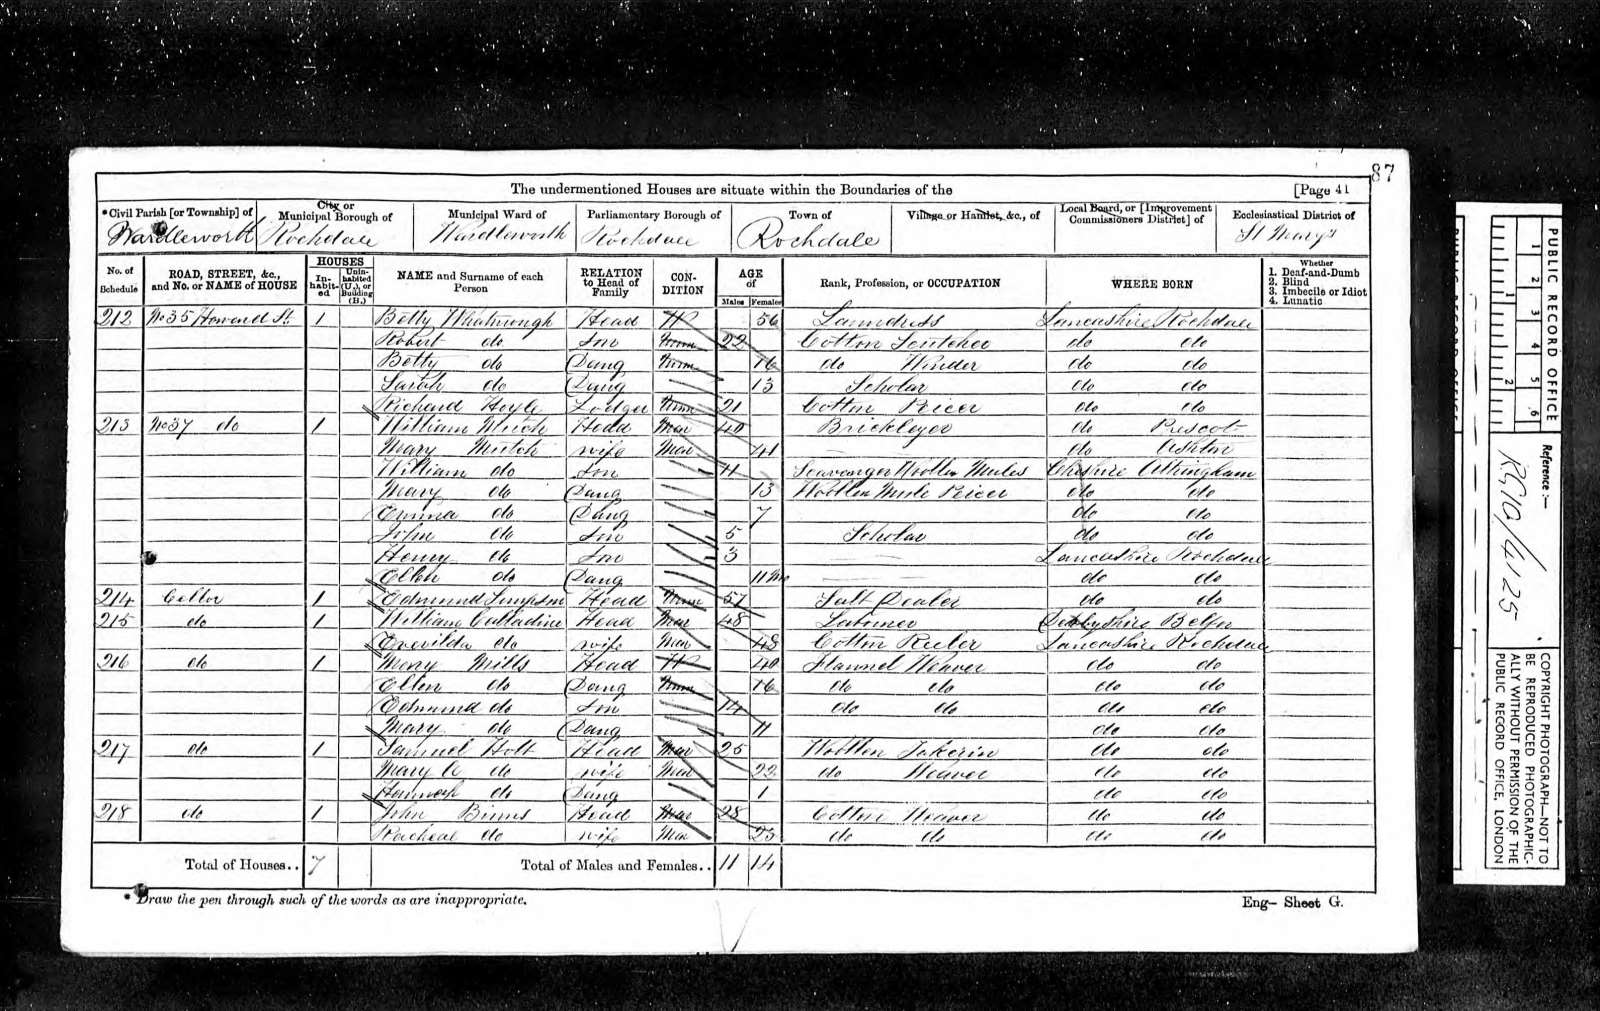 87
The undermentioned Houses are situate within the Boundaries of the [Page 41
* Civil Parish [or Township] of Wardleworth
City or Municipal Borough of Rochdale
Municipal Ward of Wardleworth
Parliamentary Borough of Rochdale
Town of Rochdale
Village or Hamlet, &c., of
Local Board, or [Improvement Commissioners District] of
Ecclesiastical District of St Mary's
No. of Schedule
ROAD, STREET, &c., and No. or NAME of HOUSE
HOUSES
In-habit-ed
Unin-habited (U.), or Building (B.)
NAME and Surname of each Person
RELATION to Head of Family
CON-DITION
AGE of
Males Females
Rank, Profession, or OCCUPATION
WHERE BORN
Whether
1. Deaf-and-Dumb
2. Blind
3. Imbecile or Idiot
4. Lunatic
212 No 35 St. 1 Betty Whatmough Head W 56 Laundress Lancashire Rochdale
Robert do Son Unm 22 Cotton do do
Betty do Daug Unm 16 do Winder do do
Sarah do Daug 13 Scholar do do
Richard Hoyle Lodger Unm 21 Cotton Peicer do do
213 No 37 do 1 William Head Mar 40 Brickleyer do Prescot
Mary wife Mar 41 do Ashton
William do Son 11 Scavenger Woollen Mules Cheshire
Mary do Daug 13 Woollen Mule Peicer do do
Emma do Daug 7 do do
John do Son 5 Scholar do do
Henry do Son 3 Lancashire Rochdale
Ellen do Daug 11 mo do do
214 Cellar 1 Edmund Simpson Head Unm 57 Salt Dealer do do
215 do 1 William Head Mar 48 Derbyshire
do wife Mar 48 Cotton Reeler Lancashire Rochdale
216 do 1 Mary Mills Head W 40 Flannel Weaver do do
Ellen do Daug Unm 16 do do do do
Edmund do Son 14 do do do do
Mary do Daug 11 do do
217 do 1 Samuel Holt Head Mar 25 Woollen do do
Mary do wife Mar 22 do Weaver do do
Hannah do Daug 1 do do
218 do 1 John Binns Head Mar 28 Cotton Weaver do do
Racheal do wife Mar 23 do do do do
Total of Houses.. 7 Total of Males and Females.. 11 14
* Draw the pen through such of the words as are inappropriate.
Eng- Sheet G.
PUBLIC RECORD OFFICE
1 2 3 4 5 6
1 2
PUBLIC RECORD OFFICE
Reference :-
RG10/4125
COPYRIGHT PHOTOGRAPH-NOT TO
BE REPRODUCED PHOTOGRAPHIC-
ALLY WITHOUT PERMISSION OF THE
PUBLIC RECORD OFFICE, LONDON